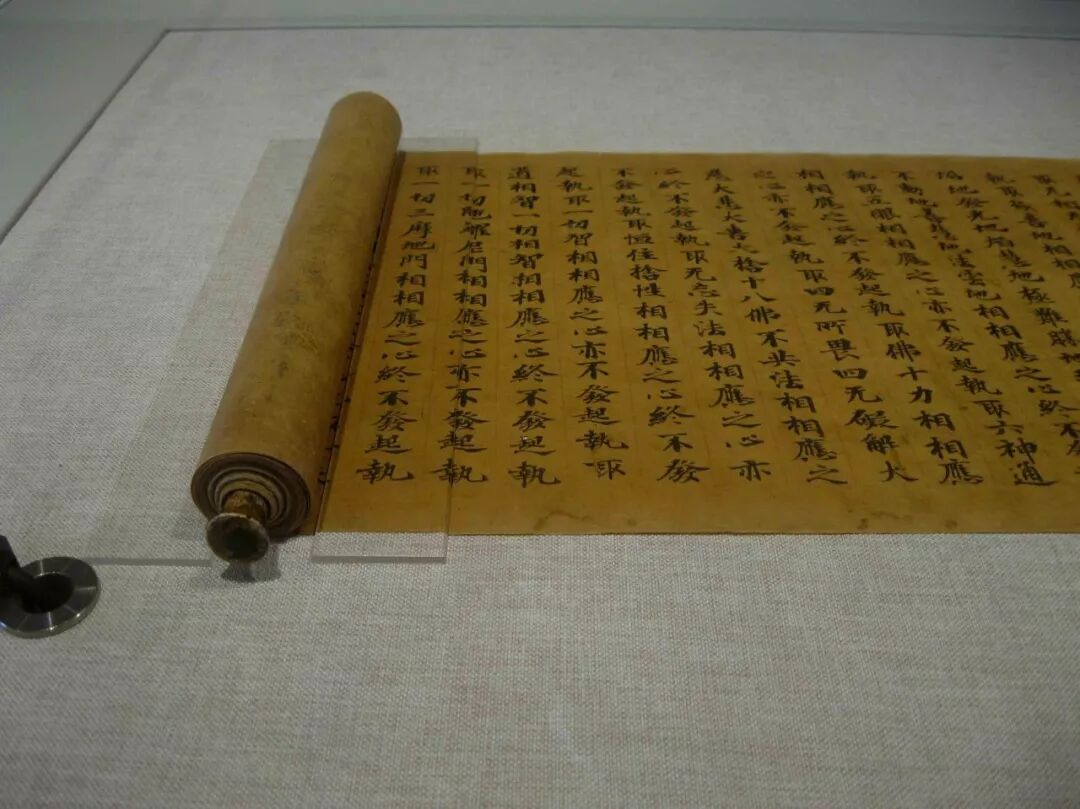 取无相
執取極喜地相相應
垢地發光地焰慧地極難勝地
不動地善慧地法雲地相相應之心終不發
執取五眼相相應之心亦不發起執取六神通
相相應之心終不發起執取佛十力相相應
之心亦不發起執取四无所畏四无礙解大
慈大悲大喜大捨十八佛不共法相相應之
心終不發起執取无忘失法相相應之心亦
不發起執取恒住捨性相相應之心終不發
起執取一切智相相應之心亦不發起執取
道相智一切相智相相應之心終不發起執
取一切陀羅尼門相相應之心亦不發起執
取一切三摩地門相相應之心終不發起執